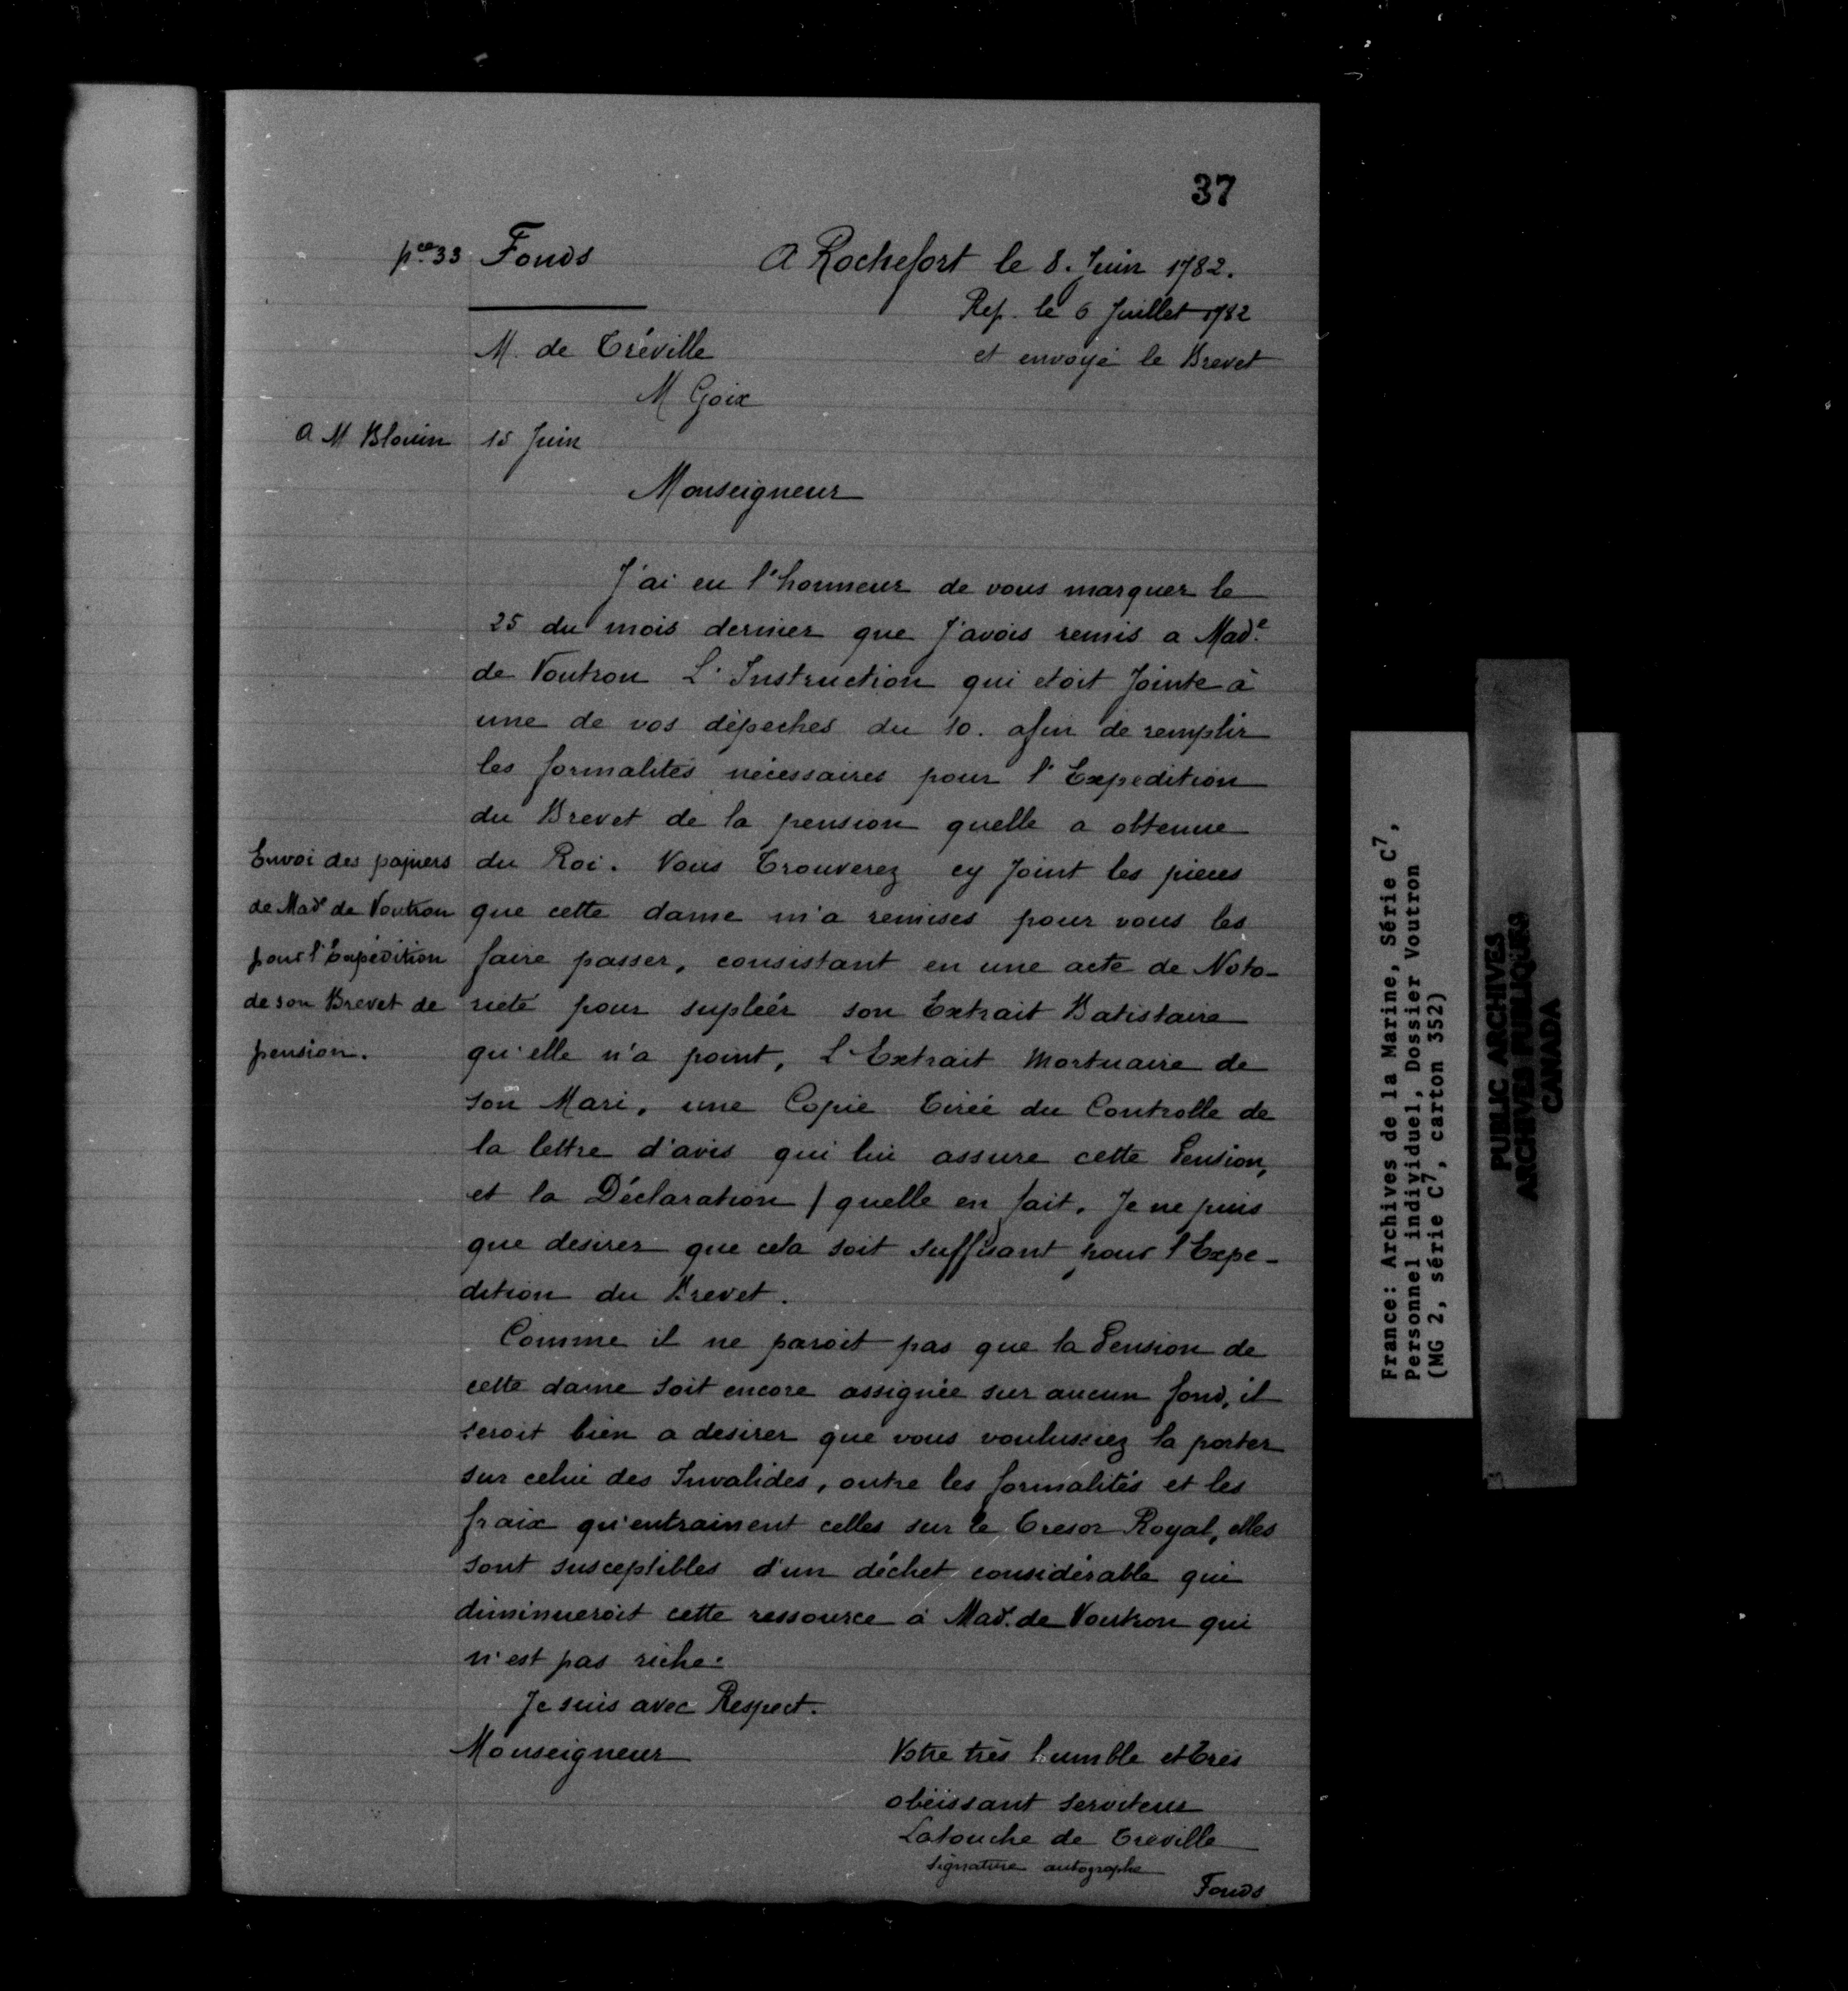 37
pce 33 Fonds
A Rochefort le 8. Juin 1782.
Rep. le 6 Juillet 1782
M. de Tréville
et envoyé le Brevet
M Goix
A M Blouin 15 Juin
Monseigneur
J'ai eu l'honneur de vous marquer le
25 du mois dernier que J'avois remis a Made.
de Voutron L'Instruction qui etoit Jointe à
une de vos dépeches du 10. afin de remplir
les formalités nécessaires pour l'Expedition
du Brevet de la pension quelle a obtenue
Envoi des papiers
de Made de Voutron
pour l'Expédition
de son Brevet de
pension.
du Roi. Vous Trouverez cy Joint les pieces
que cette dame m'a remises pour vous les
faire passer, consistant en une acte de Noto-
rieté pour supléer son Extrait Batistaire
qu'elle n'a point, L'Extrait Mortuaire de
son Mari, une Copie Tirée du Controlle de
la lettre d'avis qui lui assure cette Pension,
et la Déclaration / quelle en fait. Je ne puis
que desirer que cela soit suffisant pour l'Expe-
dition du Brevet.
Comme il ne paroit pas que la Pension de
cette dame soit encore assignée sur aucun fond, il
seroit bien a desirer que vous voulussiez la porter
sur celui des Invalides, outre les formalités et les
fraix qu'entrainent celles sur le Tresor Royal, elles
sont susceptibles d'un déchet considérable qui
diminueroit cette ressource à Mad. de Voutron qui
n'est pas riche.
Je suis avec Respect.
Monseigneur
Votre très humble et très
obéissant serviteur
Latouche de Treville
signature autographe
Fonds
France: Archives de la Marine, Série C7,
Personnel individuel, Dossier Voutron
(MG 2, série C7, carton 352)
PUBLIC ARCHIVES
ARCHIVES PUBLIQUES
CANADA